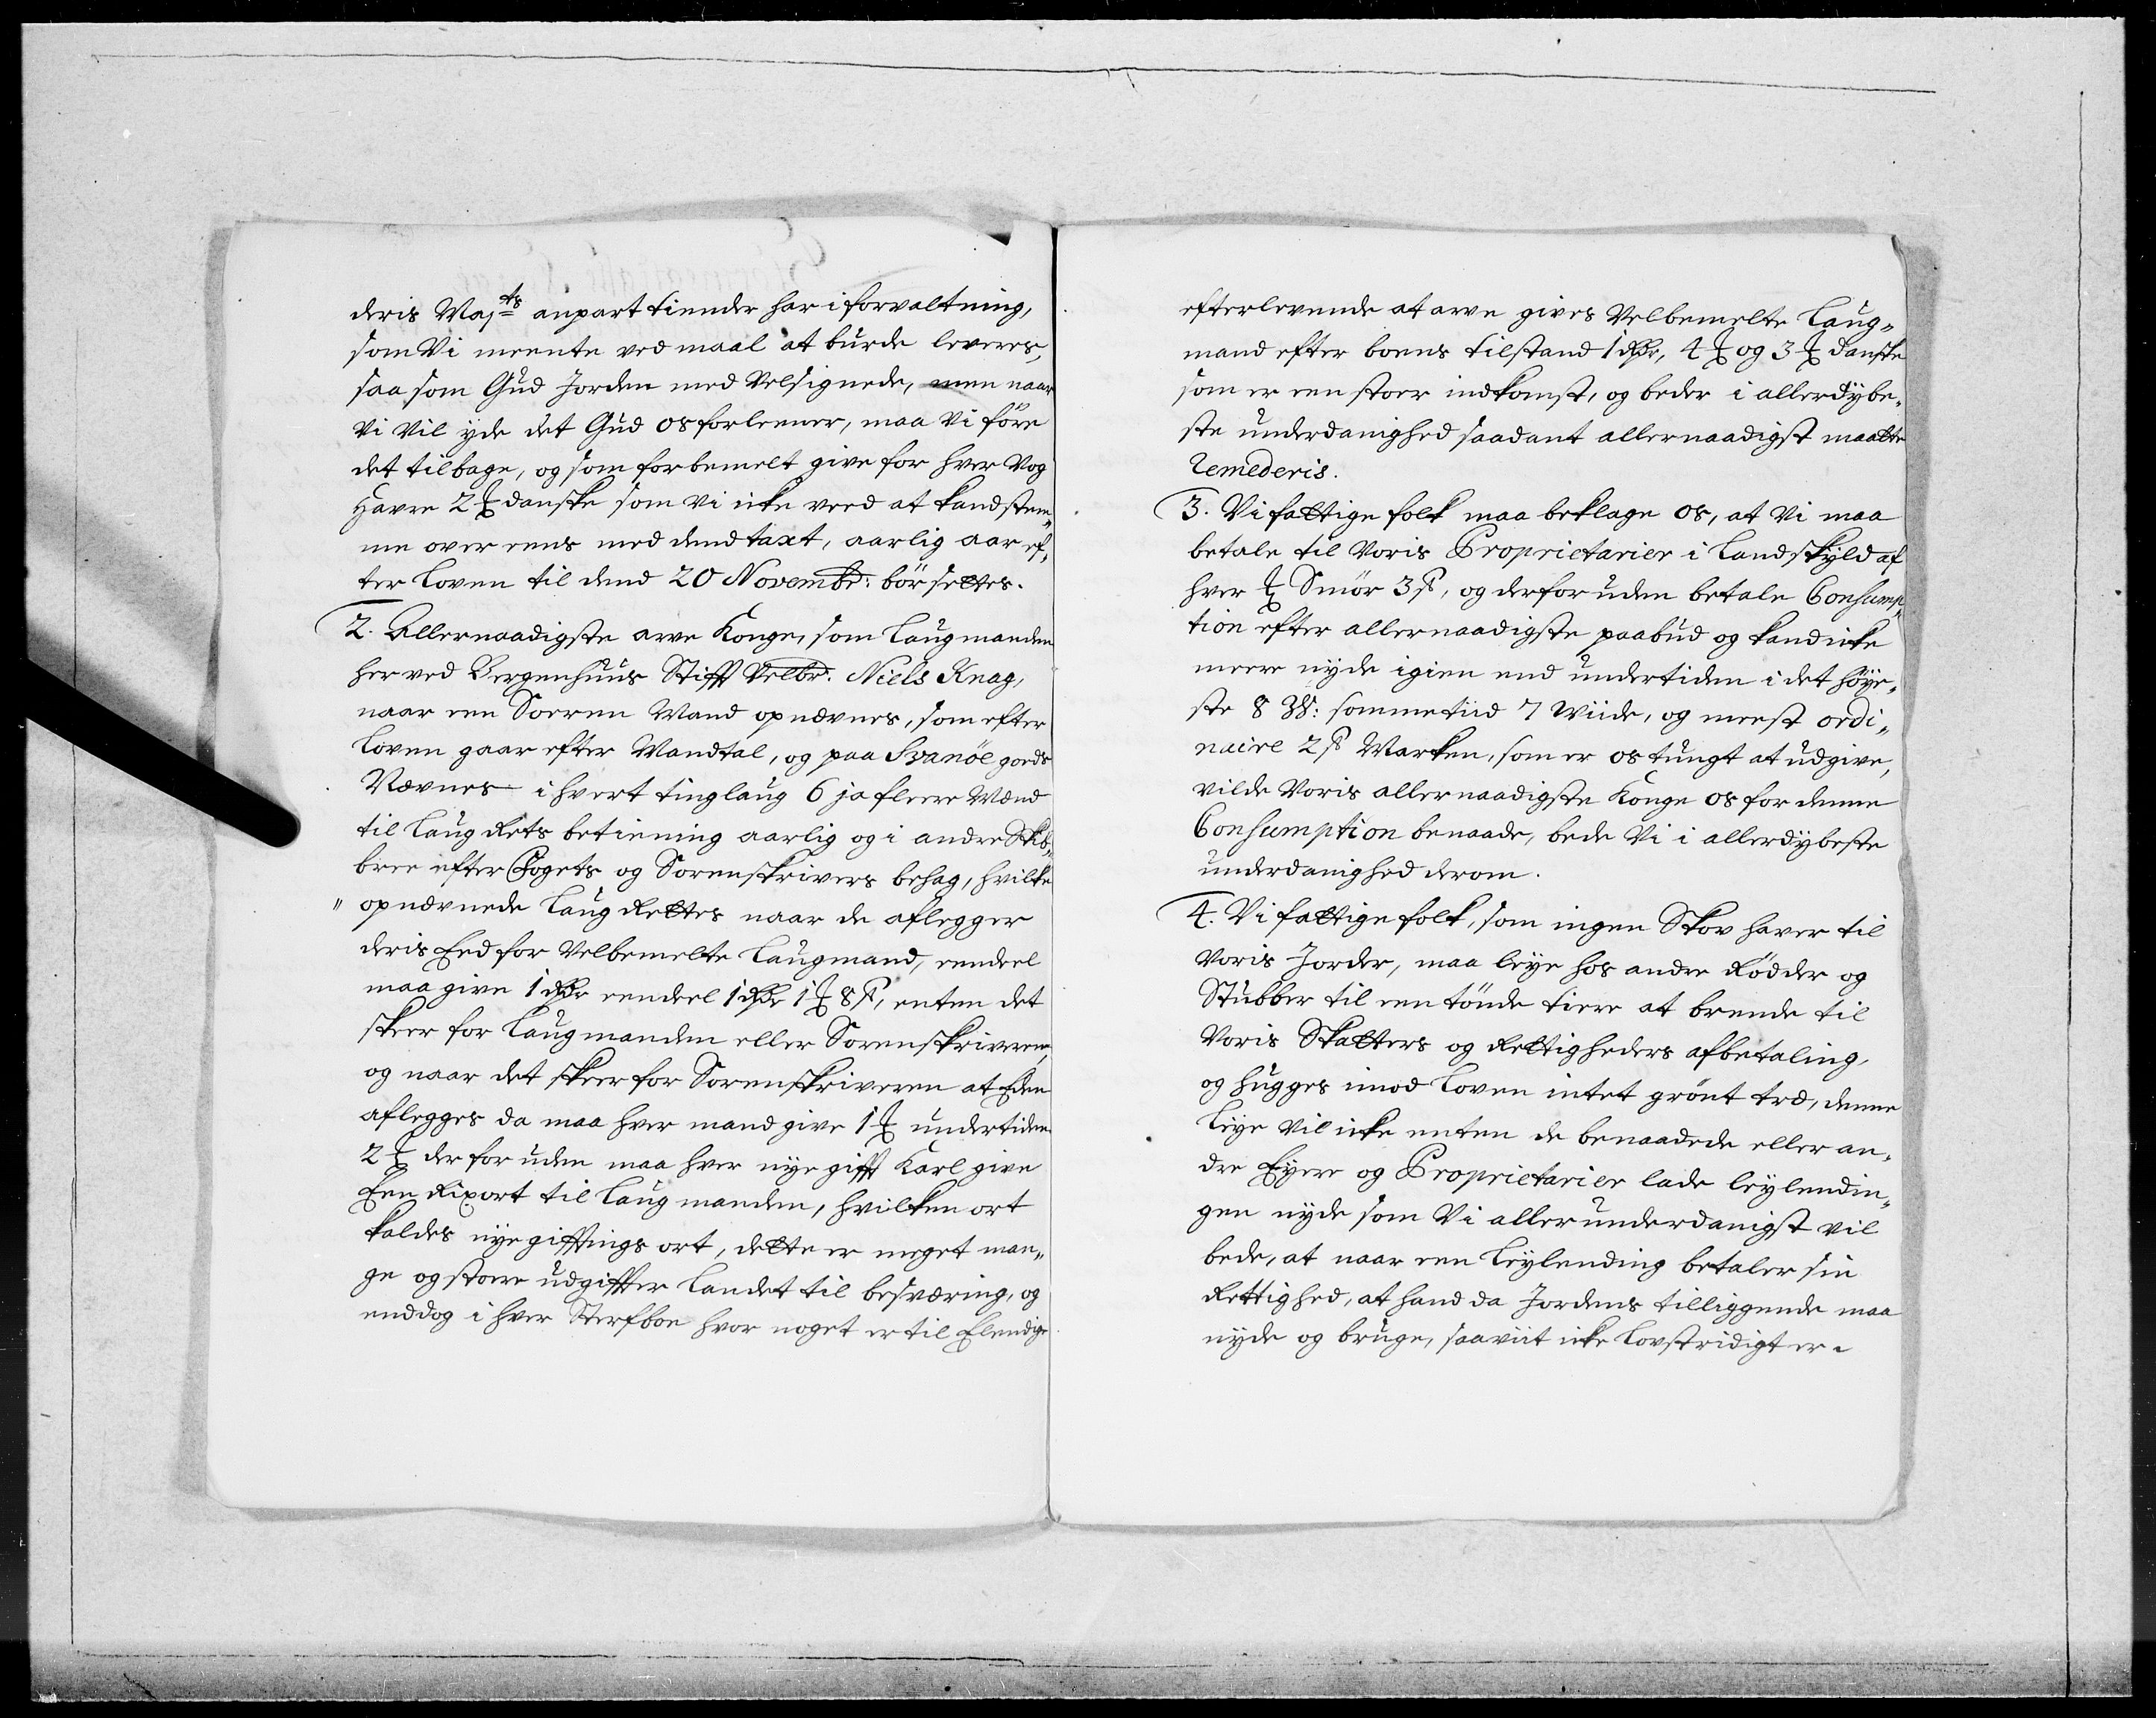 deris Majts anpart tiender har i forvaltning,
som Vi meente ved maal at burde leveres,
saa som Gud Jorden med Velsignede, men naar
Vi Vil yde det Gud os forleener, maa Vi före
det tilbage, og som forbemelt give for hver Vog
Havre 2 ℔ danske som Vi icke veed at kand stem„
me over eens med dend taxt, aarlig aar ef„
ter Loven til dend 20 Novembr: bör settes.
2. Allernaadigste arve Konge, som Laugmanden
her ved Bergenhuus Stifft Velbr. Niels Knag,
naar een Soeren Mand opnævnes, som efter
Loven gaar efter Mandtal, og paa Svanöe gods
Nævnes i hvert tinglaug 6 ja fleere Mænd
til Laug Rets betiening aarlig og i andre Skib„
bree efter Fogets og Sorenskrivers behag, hvilke
„ opnævnede Laug Rettes naar de aflegger
deris Eed for Velbemelte Laugmand, eendeel
maa give 1 Rdr eendeel 1 Rdr 1 ℔ 8 ß, enten det
skeer for Laugmanden eller Sorenskriveren,
og naar det skeer for Sorenskriveren at Eden
aflegges da maa hver mand give 1 ℔ undertiden
2 ℔ der for uden maa hver nye gifft Karl give
Een Rixort til Laugmanden, hvilken ort
kaldes nye gifftings ort, dette er meget man„
ge og store udgiffter Landet til besværing, og
enddog i hver Sterfboe hvor noget er til Elendige
efterlevende at arve gives Velbemelte Laug„
mand efter boens tilstand 1 Rdr, 4 ℔ og 3 ℔ danske
som er een stoer indkomst, og beder i allerdybe„
ste underdanighed saadant allernaadigst maatte
remederis.
3. Vi fattige folk maa beklage os, at Vi maa
betale til Voris Proprietarier i Landskyld af
hver ℔ Smör 3 ß, og derforuden betale Consump„
tion efter allernaadigste paabud og kand icke
meere nyde igien end undertiden i det höye„
ste 8 ß: sommetiid 7 Wiide, og meest ordi„
naire 2 ß Marken, som er os tungt at udgive,
vilde Voris allernaadigste Konge os for denne
Consumption benaade, bede Vi i allerdybeste
underdanighed derom.
4. Vi fattige folk, som ingen Skov haver til
Voris Jorder, maa leye hos andre Rödder og
Stubber til een tönde tiere at brende til
Voris Skatters og Rettigheders afbetaling,
og hugges imod Loven intet grönt træ, denne
Leye Vil icke enten de benaadede eller an„
dre Eyere og Proprietarier lade leylendin„
gen nyde som Vi allerunderdanigst vil
bede, at naar een Leylending betaler sin
Rettighed, at hand da Jordens tilliggende maa
nyde og bruge, saaviit icke Lovstridigt er.